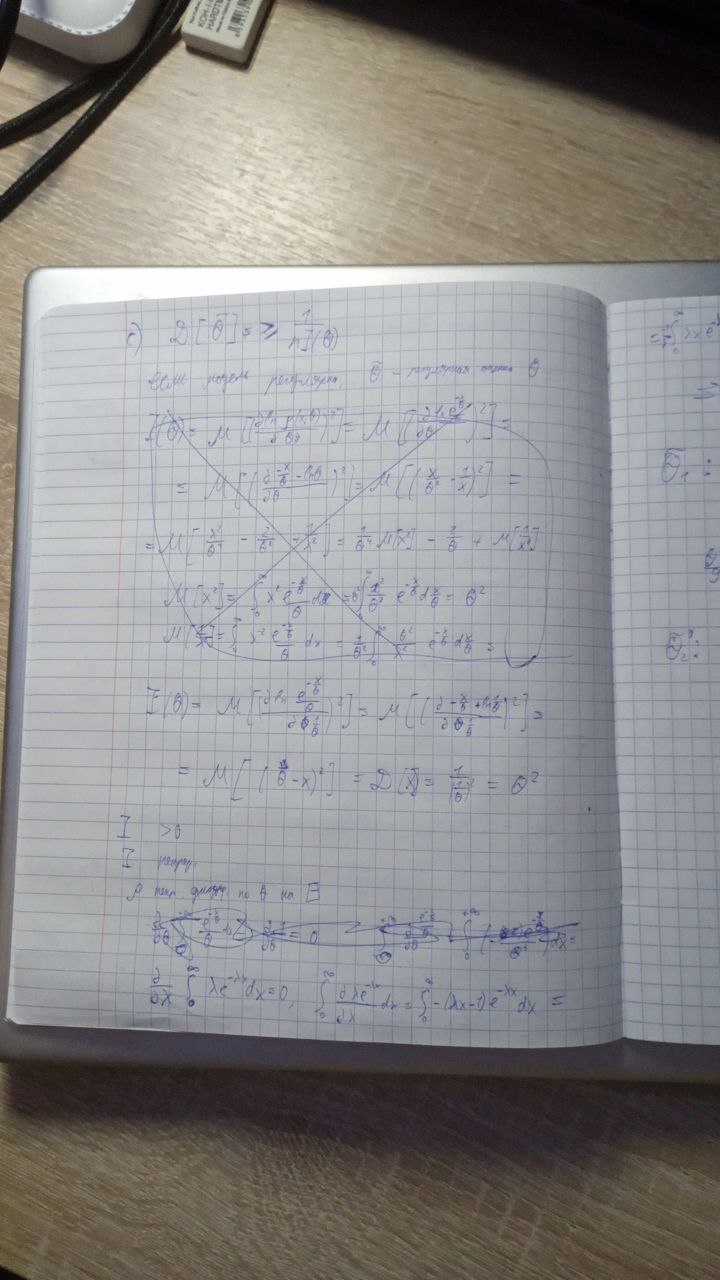 КОН-I
HARDT
c) D[θ̃] = ≥ 1/(nI(θ))
если модель регулярна, θ̃ - регулярная оценка θ
I(θ) = M[(∂ln p(x,θ)/∂θ)²] = M[(∂ln e^(-x/θ)/∂θ)²] =
= M[(∂(-x/θ - lnθ)/∂θ)²] = M[(x/θ² - 1/x)²] =
= M[x²/θ⁴ - 2/θ² - 1/x²] = 1/θ⁴ M[x²] - 2/θ + M[1/x²]
M[x²] = ∫₀^∞ x² e^(-x/θ)/θ dx = θ²∫₀^∞ x²/θ² e^(-x/θ) d x/θ = θ²
M[1/x²] = ∫₀^∞ x⁻² e^(-x/θ)/θ dx = 1/θ² ∫₀^∞ θ²/x² e^(-x/θ) d x/θ =
I(θ) = M[(∂ln e^(-x/θ)/θ / ∂ 1/θ)²] = M[(∂(-x/θ + ln 1/θ)/∂ 1/θ)²] =
= M[(θ - x)²] = D[x] = 1/(1/θ)² = θ²
I > 0
I непрер.
p непр. дифф. по θ на
∂/∂λ ∫₀^∞ λe^(-λx)dx = 0, ∫₀^∞ ∂λe^(-λx)/∂λ dx = ∫₀^∞ -(λx-1)e^(-λx) dx =
= ∫₀^∞ λx e
θ̃₁ :
θ̃₂ :